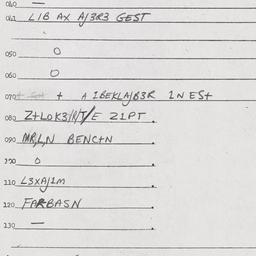 040 —
041 LIB AX A/3R3 GEST
050 O
060 O
070 + A IBEKLA/B3R IN ES+
080 Z+LOK3/H/T/E Z1PT .
090 MR/L,N BENC+N .
100 O .
110 L3XA/1M .
120 FARBASN .
130 —